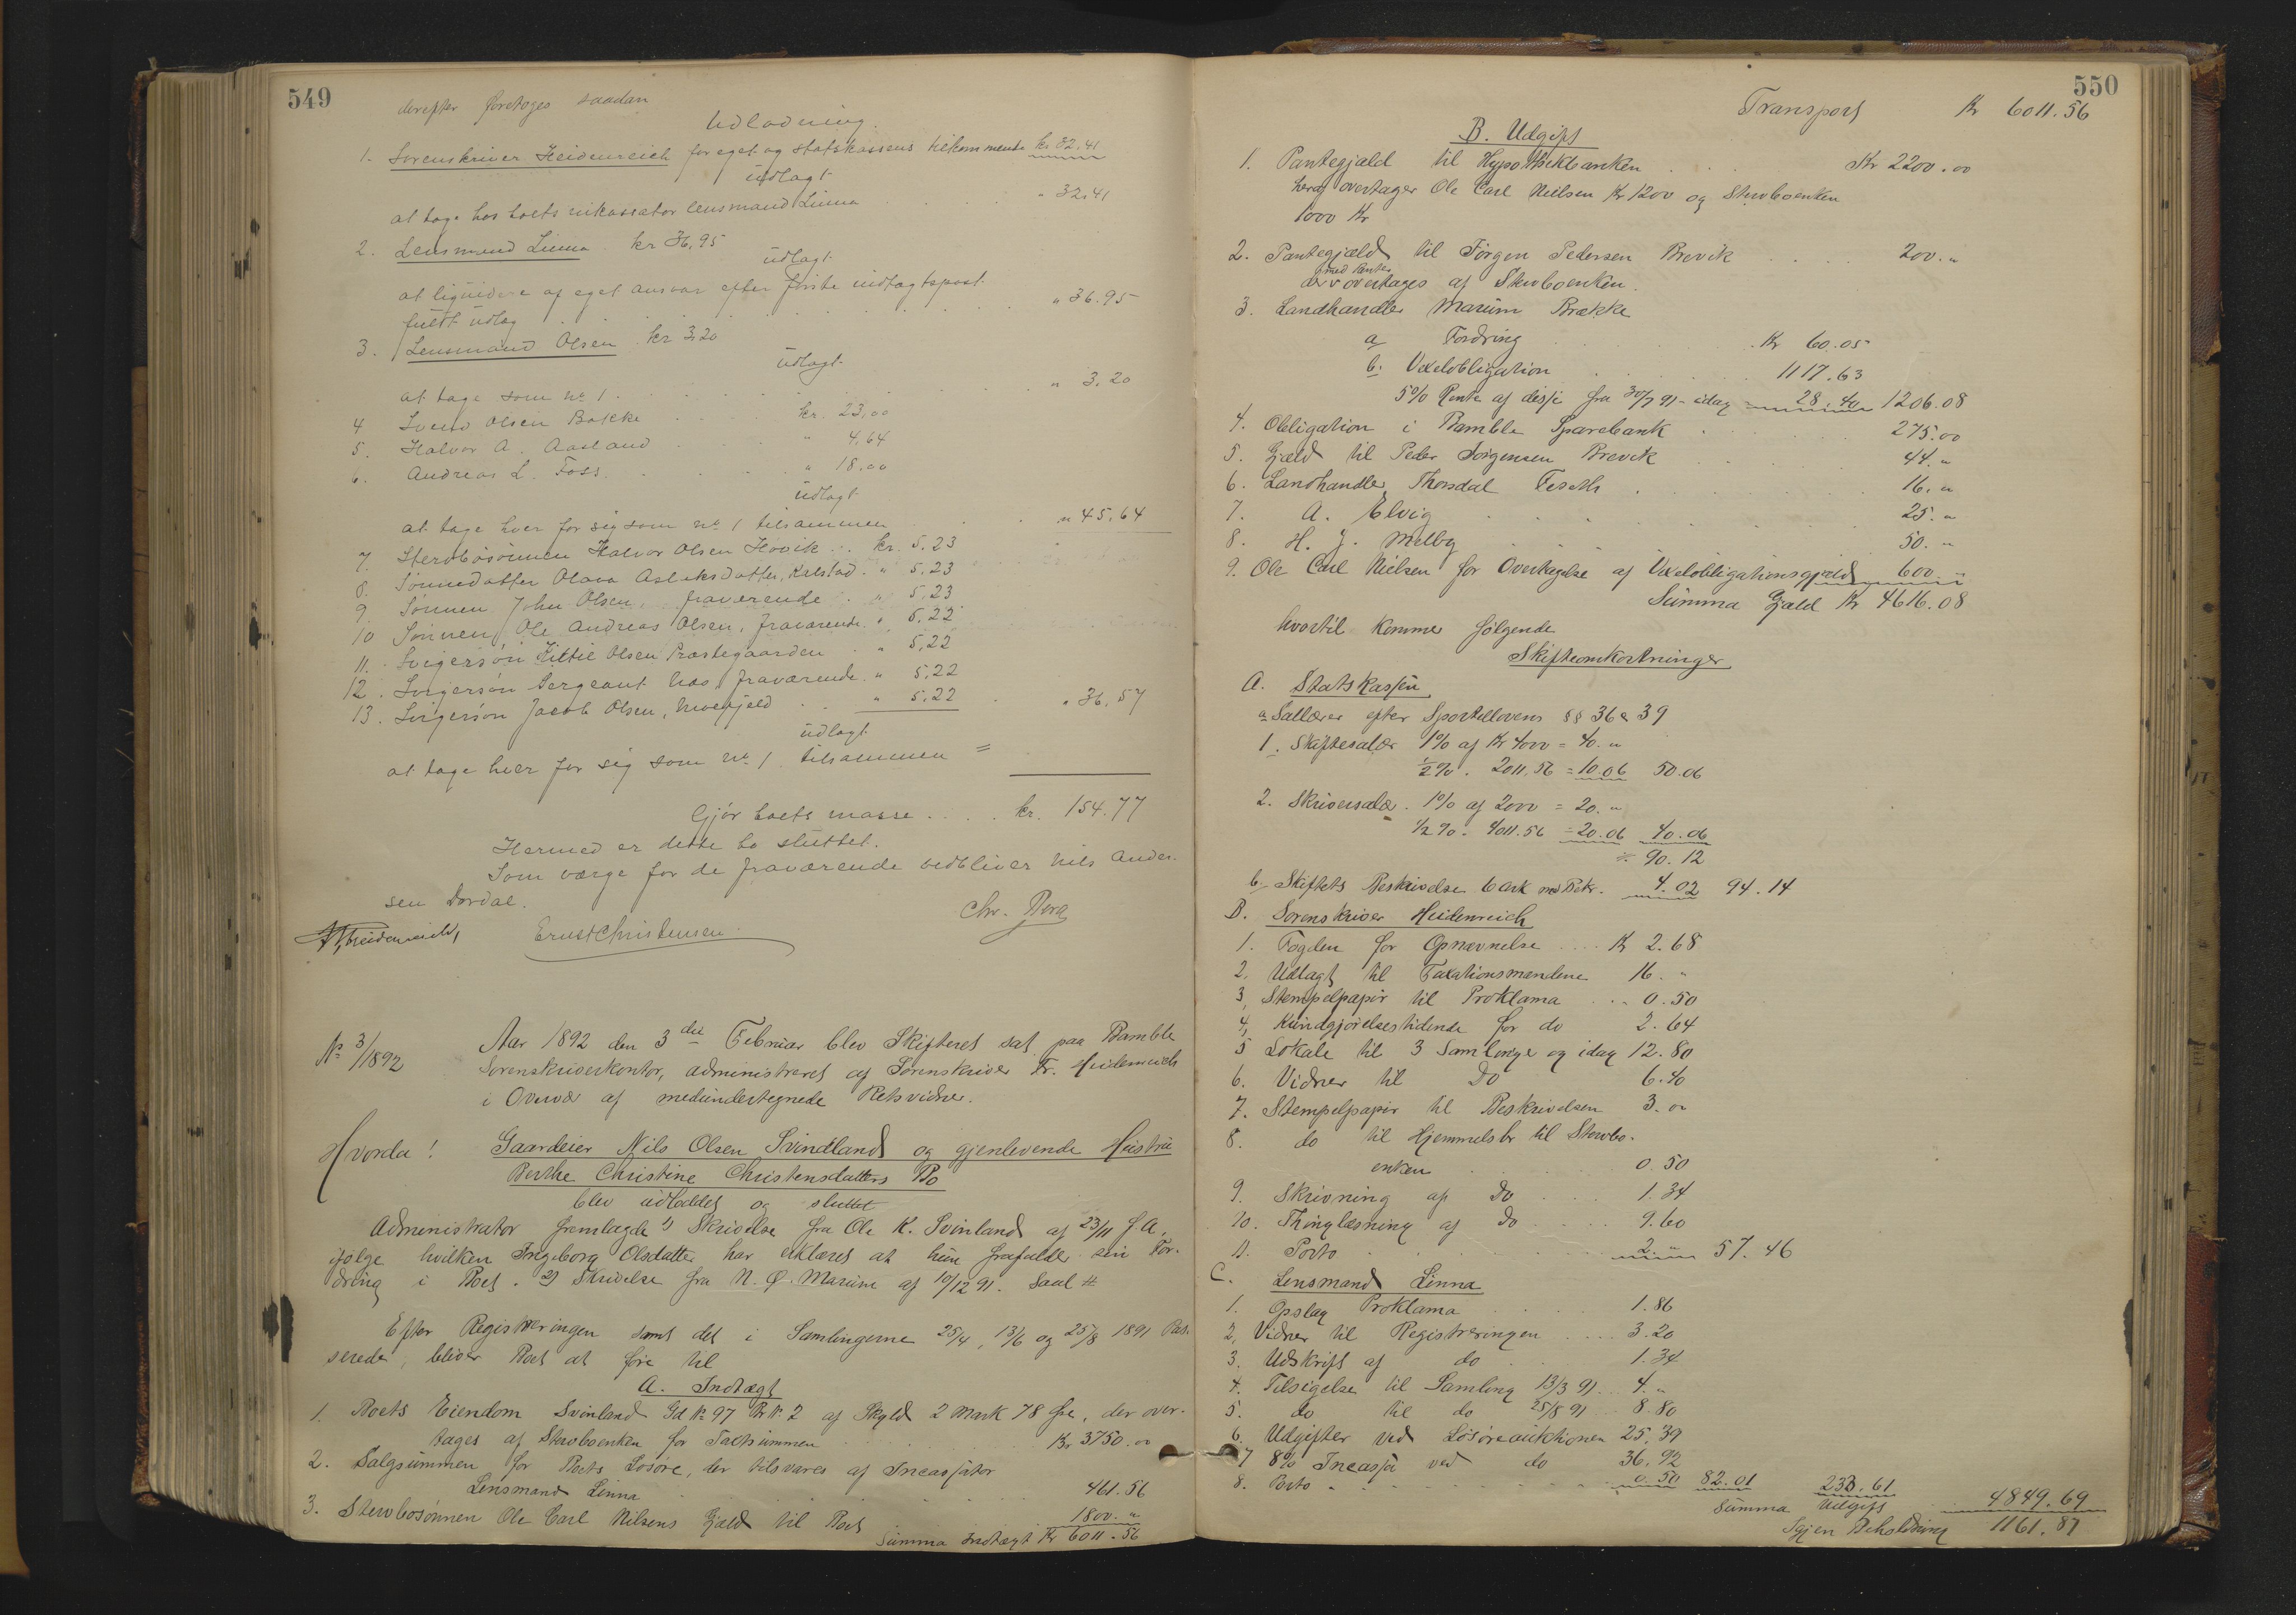 549
derefter foretoges saadan
Udlodning.
1. Sorenskriver Heidenreich for eget og statskassens tilkommende kr 32.41
udlagt
at tage hos boets inkassator lensmand Linna " 32,41
2. Lensmand Linna kr 36,95
udlagt
at liquidere af eget ansvar efter første indtægtspost
fuldt udlæg " 36.95
3. Lensmand Olsen kr 3,20
udlagt
at tage som no 1 " 3,20
4 Svend Olsen Bakke kr. 23,00
5. Halvor A. Aasland " 4,64
6. Andreas L. Foss " 18.00
udlagt
at tage hver for sig som no 1 tilsammen " 45,64
7. Sterbosønnen Halvor Olsen Hovik kr. 5,23
8. Sønnedatter Olava Aslaksdatter, Kalstad " 5,23
9 Sønnen John Olsen, fraværende " 5,23
10 Sønnen Ole Andreas Olsen, fraværende " 5,22
11. Svigersøn Kittil Olsen Præstegaarden " 5,22
12. Svigersøn Sergeant Aas, fraværende " 5,22
13. Svigersøn Jacob Olsen, " 5,22 " 36,57
udlagt
at tage hver for sig som no 1 tilsammen =
Gjør boets masse kr. 154.77
Hermed er dette bo sluttet.
Som værge for de fraværende vedbliver Nils Ander-
sen Dordal.
Heidenreich Ernst Christensen Chr. Berg
No 3/1892
Aar 1892 den 3die Februar blev Skifteret sat paa Bamble
Sorenskriverkontor, administreret af Sorenskriver Fr. Heidenreich
i Overvær af medundertegnede Retsvidner.
Hvorda!
Gaardeier Nils Olsen Svindland og gjenlevende Hustru
Berthe Christine Christensdatters Bo
blev udloddet og sluttet
Administrator fremlagde 1) Skrivelse fra Ole K. Svinland af 23/11 f.A.,
ifølge hvilken Ingeborg Olsdatter har erklæret at hun frafalder sin For-
dring i Boet. 2) Skrivelse fra N. O. Marum af 10/12 91. Saal #
Efter Registreringen samt det i Samlingerne 25/4, 13/6 og 25/8 1891 Pas-
serede, bliver Boet at føre til
A. Indtægt
1. Boets Eiendom Svinland Gd No 97 Br No 2 af Skyld 2 Mark 78 Øre, der over-
tages af Stervboenken for Taxtsummen Kr 3750.00
2. Salgsummen for Boets Løsøre, der tilsvares af Incassator
Lensmand Linna 461.56
3. Stervbosønnen Ole Carl Nilsens Gjæld til Boet 1800. "
Summa Indtægt Kr 6011.56
550
Transport Kr 6011.56
B. Udgift
1. Pantegjæld til Hypothekbanken Kr 2200.00
heraf overtager Ole Carl Nielsen Kr 1200 og Stervboenken
1000 Kr
2. Pantegjæld til Jørgen Pedersen Brevik 200. "
med Pantet
der v overtages af Stervboenken.
3. Landhandler Marum Brække
a Fordring Kr 60.05
b. Vexelobligation 1117.63
5% Rente af disse fra 30/7 91 - idag 28.40 1206.08
4. Obligation i Bamble Sparebank 275.00
5. Gjæld til Peder Jørgensen Brevik 44. "
6. Landhandler Thorsdal Feseth 16. "
7. A. Elvig 25. "
8. H. J. Melby 50. "
9. Ole Carl Nielsen for Overtagelse af Vexelobligationsgjæld 600. "
Summa Gjæld Kr 4616.08
hvortil kommer følgende
Skifteomkostninger
A. Statskassen
a Sallærer efter Sportellovens §§ 36 & 39
1. Skiftesalær 1% af Kr 4000 = 40. "
1/2 %. 2011.56 = 10.06 50.06
2. Skriversalær. 1% af 2000 = 20. "
1/2 %. 4011.56 = 20.06 40.06
90.12
b. Skiftets Beskrivelse 6 Ark med Bekr. 4.02 94.14
B. Sorenskriver Heidenreich
1. Fogden for Opnævnelse Kr 2.68
2, Udlagt til Taxationsmændene 16. "
3, Stempelpapir til Proklama 0.50
4, Kundgjørelsestidende for do 2.64
5 Lokale til 3 Samlinger og idag 12.80
6. Vidner til Do 6.40
7. Stempelpapir til Beskrivelsen 3.00
8. do til Hjemmelsbr til Stervbo-
enken 0.50
9. Skrivning af Do 1.34
10. Thinglæsning af Do 9.60
11. Porto 2. " 57.46
C. Lensmand Linna
1. Opslag Proklama 1.86
2, Vidner til Registreringen 3.20
3. Udskrift af do 1.34
4. Tilsigelse til Samling 13/3 91 4. "
5. do til do 25/8 91 8.80
6. Udgifter ved Løsøreauktionen 25.39
7 8% Incasso ved do 36.92
8. Porto 0.50 82.01 233.61
Summa Udgift 4849.69
Igjen Beholdning 1161.87